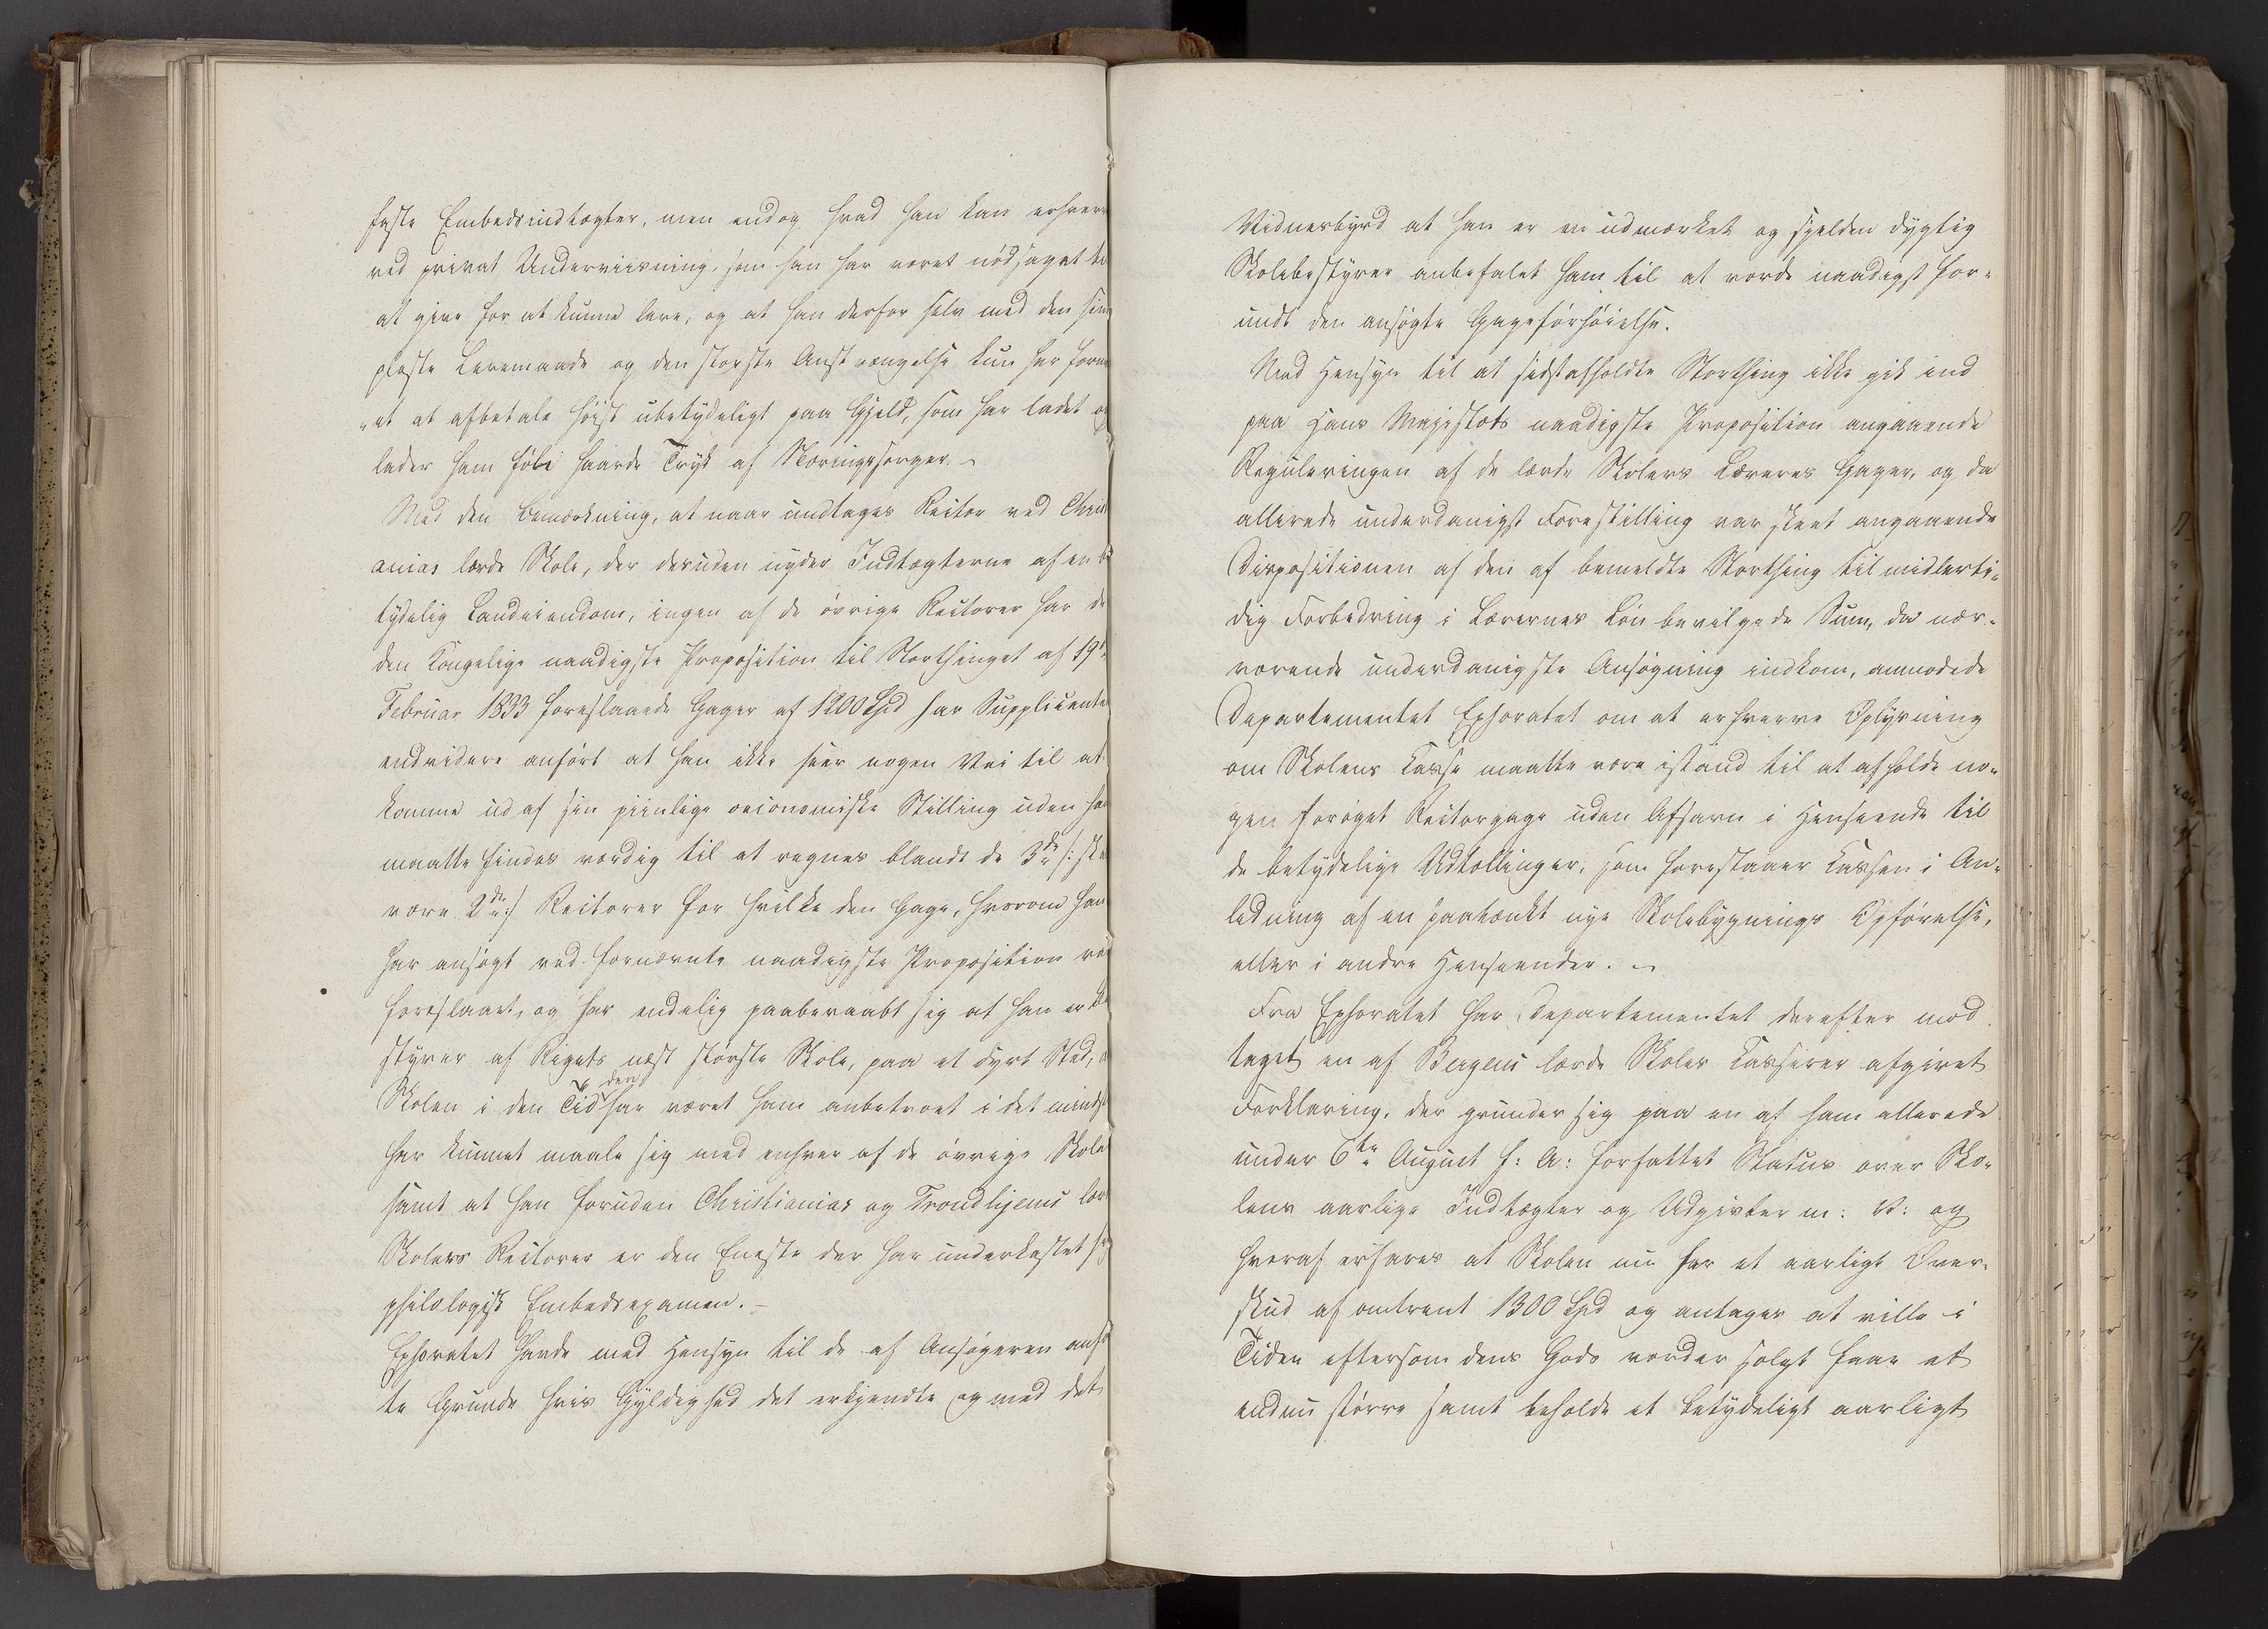 faste Embedsindtægter, men endog hvad han kan erhverv
ved privat Underviisning, som han har været nødsaget ti
at give for at kunne leve, og at han derfor selv med den sim
pleste Levemaade og den største Anstrængelse kun har form
at at afbetale høist ubetydeligt paa Gjeld, som har ladet og
lader ham føle haarde Tryk af Næringssorger. -
Med den Bemærkning, at naar undtages Rector ved Christi
anias lærde Skole, der desuden nyder Indtægterne af en be
tydelig Landeiendom, ingen af de øvrige Rectorer har de
den Kongelige naadigste Proposition til Storthinget af 19de
Februar 1833 foreslaaede Gager af 1200 Spd har Supplicanten
endvidere anført at han ikke seer nogen Vei til at
komme ud af sin piinlige oeconomiske Stilling uden han
maatte findes værdig til at regnes blandt de 3de /: skal
være 2de :/ Rectorer for hvilke den Gage, hvorom han
har ansøgt ved fornævnte naadigste Proposition va
foreslaaet, og har endelig paaberaabt sig at han er Be
styrer af Rigets næst største Skole, paa et dyrt Sted, a
Skolen i den Tid den har været ham anbetroet i det mindst
har kunnet maale sig med enhver af de øvrige Skole
samt at han foruden Christianias og Trondhjems lær
Skolers Rectorer er den Eneste der har underkastet sig
philologisk Embedsexamen. -
Ephoratet havde med Hensyn til de af Ansøgeren anfø
te Grunde hvis Gyldighed det erkjendte og med det
Vidnesbyrd at han er en udmærket og sjelden dygtig
Skolebestyrer anbefalet ham til at vorde naadigst for-
undt den ansøgte Gageforhøielse.
Med Hensyn til at sidstafholdte Storthing ikke gik ind
paa Hans Majestæts naadigste Proposition angaaende
Reguleringen af de lærde Skolers Læreres Gager, og da
allerede underdanigst Forestilling var skeet angaaende
Dispositionen af den af bemeldte Storthing til midlerti-
dig Forbedring i Lærernes Løn bevilgede Sum, da nær-
værende underdanigste Ansøgning indkom, anmodede
Departementet Ephoratet om at erhverve Oplysning
om Skolens Casse maatte være istand til at afholde no-
gen forøget Rectorgage uden Afsavn i Henseende til
de betydelige Udtællinger, som forestaaer Cassen i An-
ledning af en paatænkt nye Skolebygnings Opførelse,
eller i andre Henseender. -
Fra Ephoratet har Departementet derefter mod-
taget en af Bergens lærde Skoles Casserer afgivet
Forklaring, der grunder sig paa en af ham allerede
under 6te August f: A: forfattet Status over Sko-
lens aarlige Indtægter og Udgivter m: V: og
hveraf erfares at Skolen nu har et aarligt Over-
skud af omtrent 1300 Spd og antages at ville i
Tiden eftersom dens Gods vorder solgt faae et
endnu større samt beholde et betydeligt aarligt